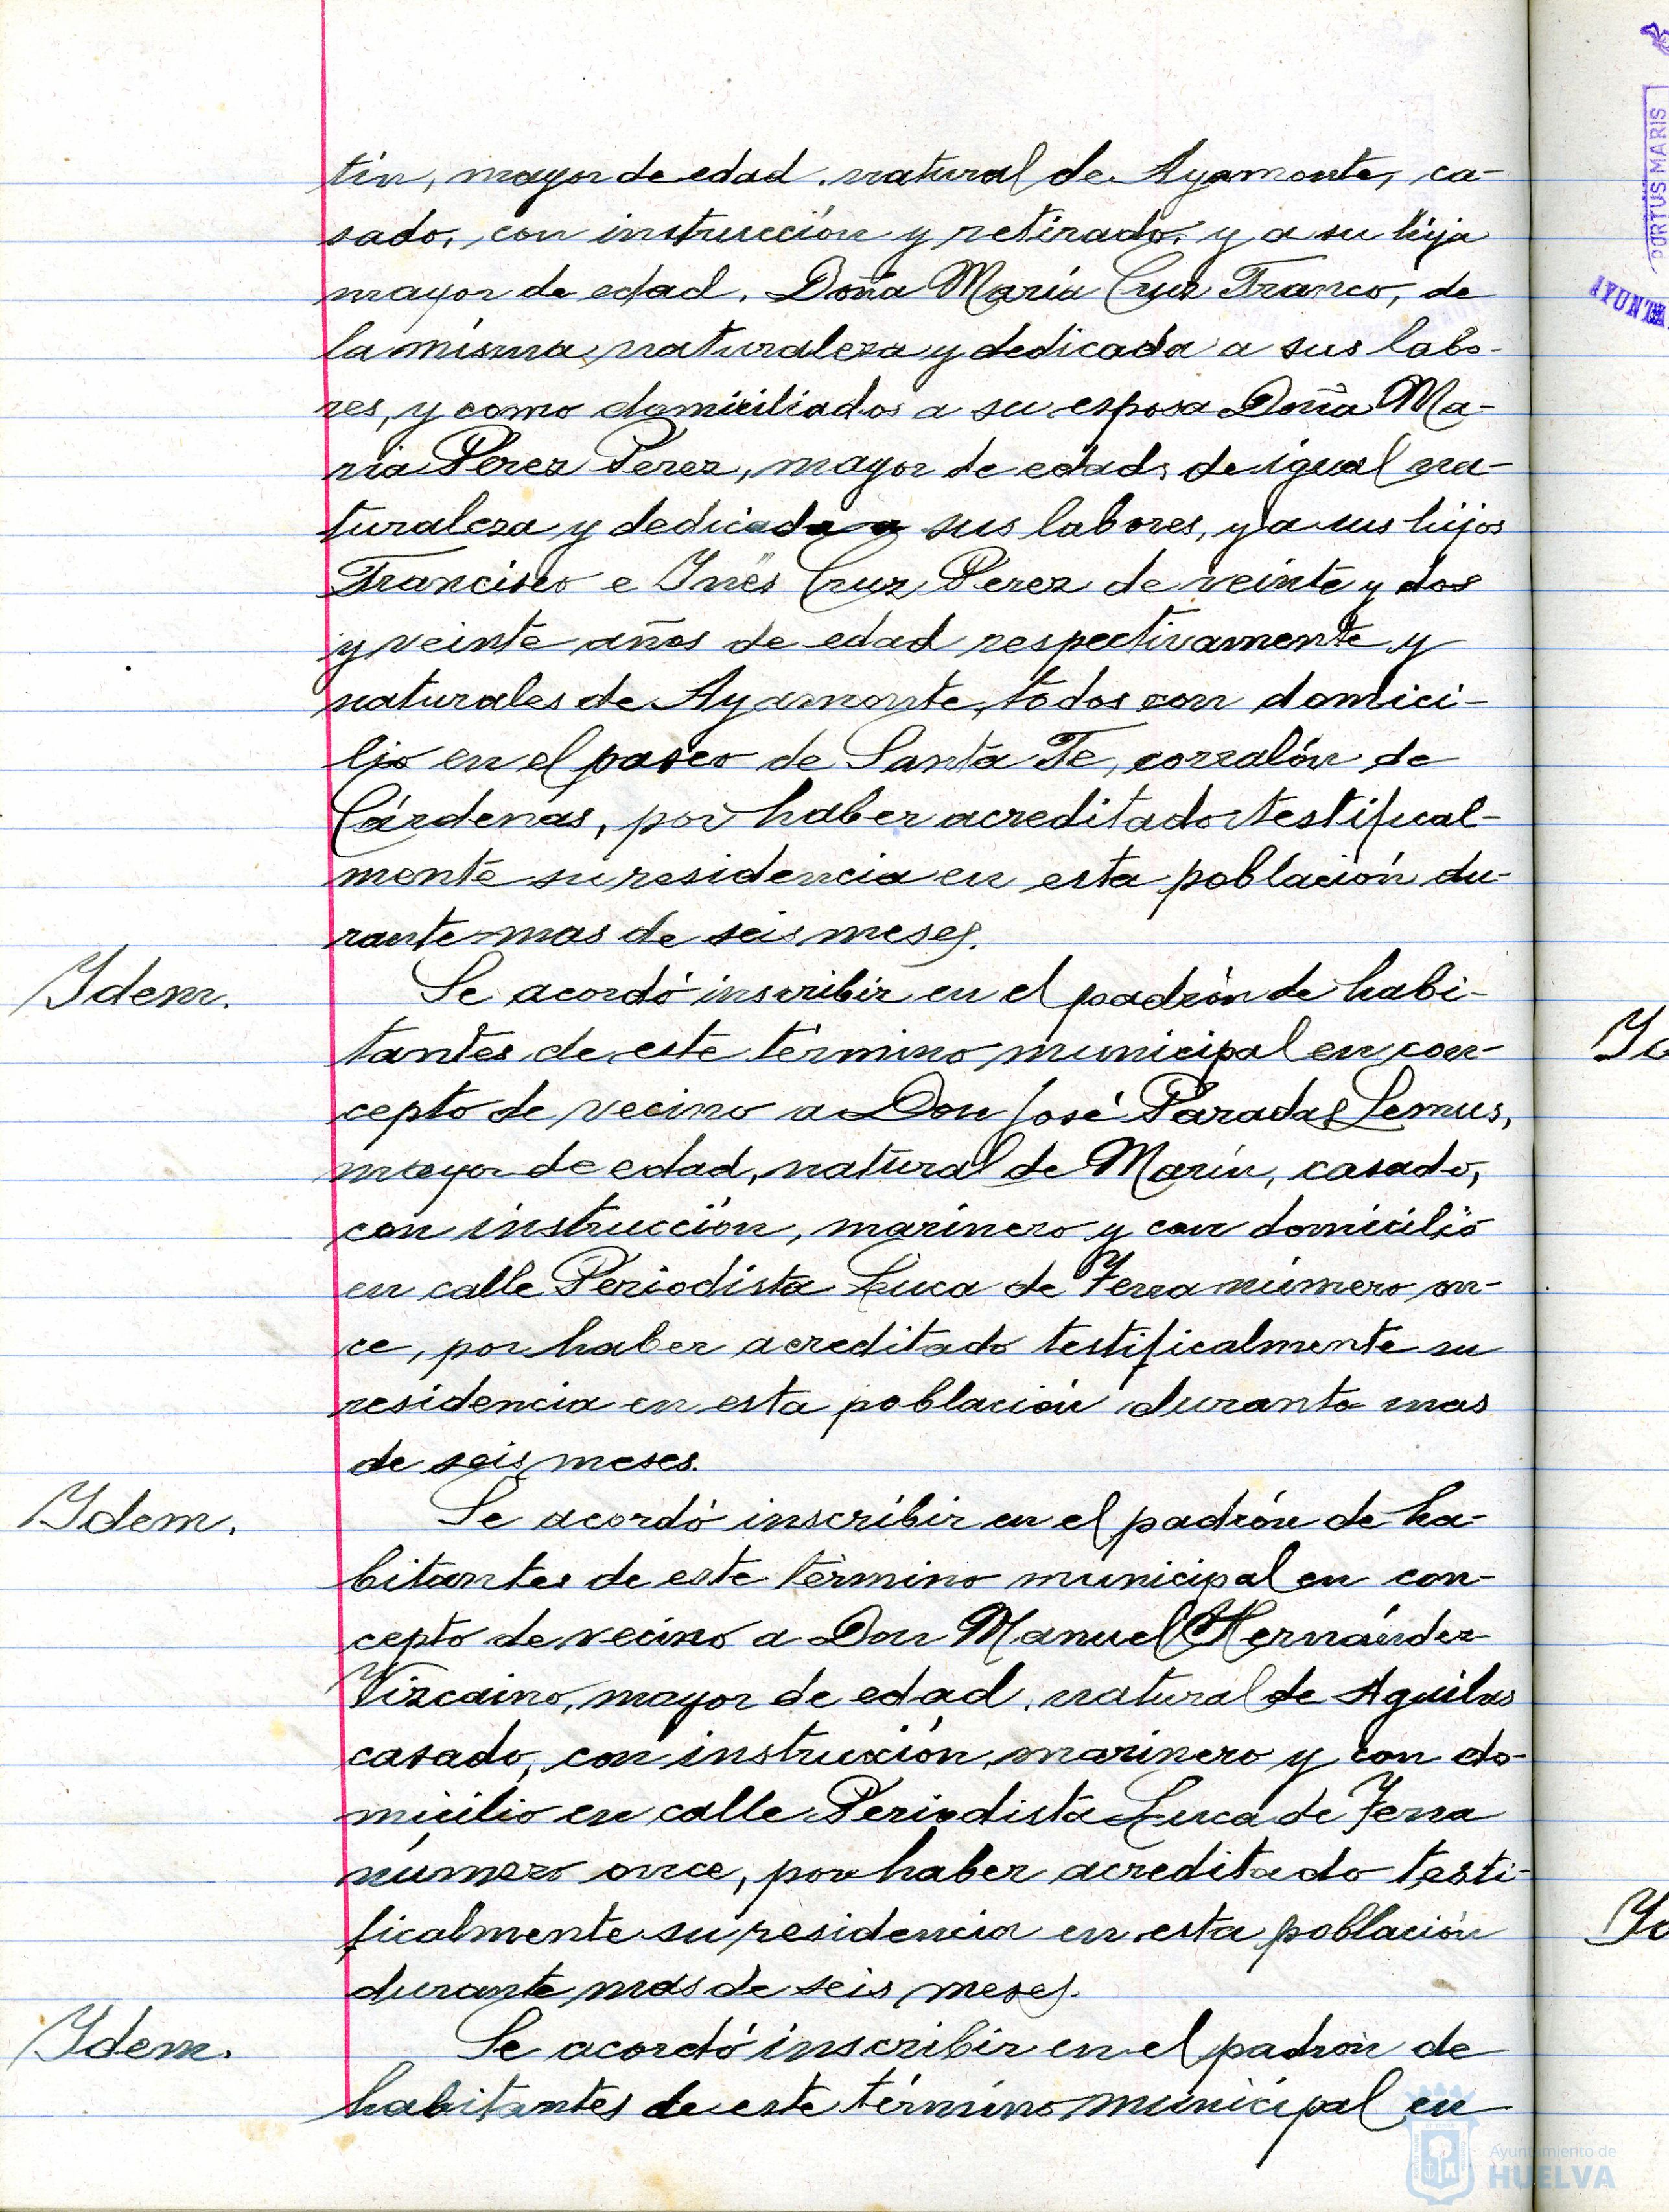 tin, mayor de edad, natural de Ayamonte, ca-
sado, con instrucción y retirado, y a su hija
mayor de edad, Doña María Cruz Franco, de
la misma naturaleza y dedicada a sus labo-
res, y como domiciliados a su esposa Doña Ma-
ria Perez Perez, mayor de edad, de igual na-
turaleza y dedicada a sus labores, y a sus hijos
Francisco e Inés Cruz Perez de veinte y dos
y veinte años de edad respectivamente y
naturales de Ayamonte, todos con domici-
lio en el paseo de Santa Fe, corralón de
Cárdenas, por haber acreditado testifical-
mente su residencia en esta población du-
rante mas de seis meses.
Idem.
Se acordó inscribir en el padrón de habi-
tantes de este término municipal en con-
cepto de vecino a Don José Paradas Lemus,
mayor de edad, natural de Marin, casado,
con instrucción, marinero y con domicilio
en calle Periodista Luca de Tena número on-
ce, por haber acreditado testificalmente su
residencia en esta población durante mas
de seis meses.
Idem.
Se acordó inscribir en el padrón de ha-
bitantes de este término municipal en con-
cepto de vecino a Don Manuel Hernández
Vizcaino, mayor de edad, natural de Aguilas
casado, con instrucción, marinero y con do-
micilio en calle Periodista Luca de Tena
número once, por haber acreditado testi-
ficalmente su residencia en esta población
durante mas de seis meses.
Idem.
Se acordó inscribir en el padrón de
habitantes de este término municipal en
PORTUS MARIS
AYUNTA
Ayuntamiento de
HUELVA